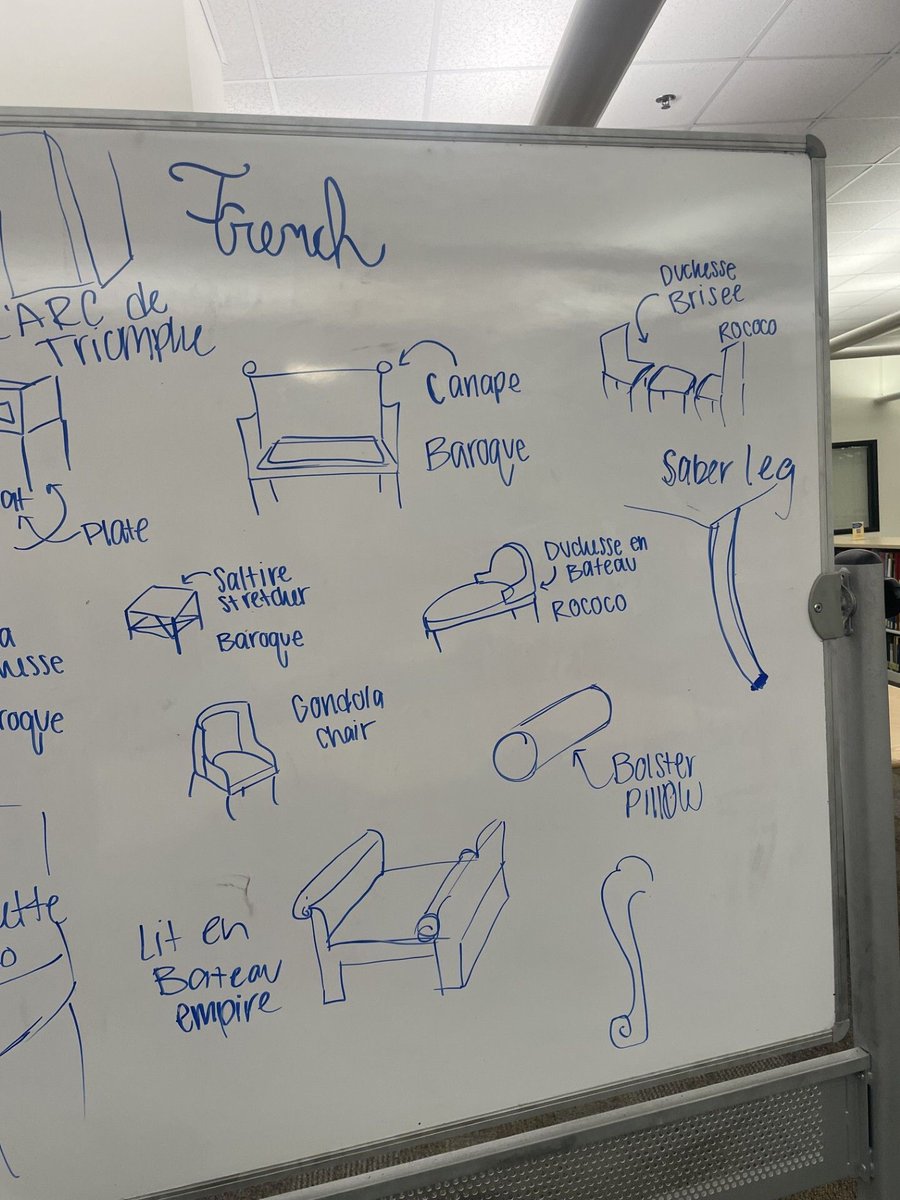 French
L'ARC de
Triomphe
Duchesse
Brisee
Rococo
Canape
Baroque
Plate
Saber leg
Saltire
stretcher
Baroque
Duchesse en
Bateau
Rococo
Gondola
chair
Bolster
Pillow
Lit en
Bateau
empire